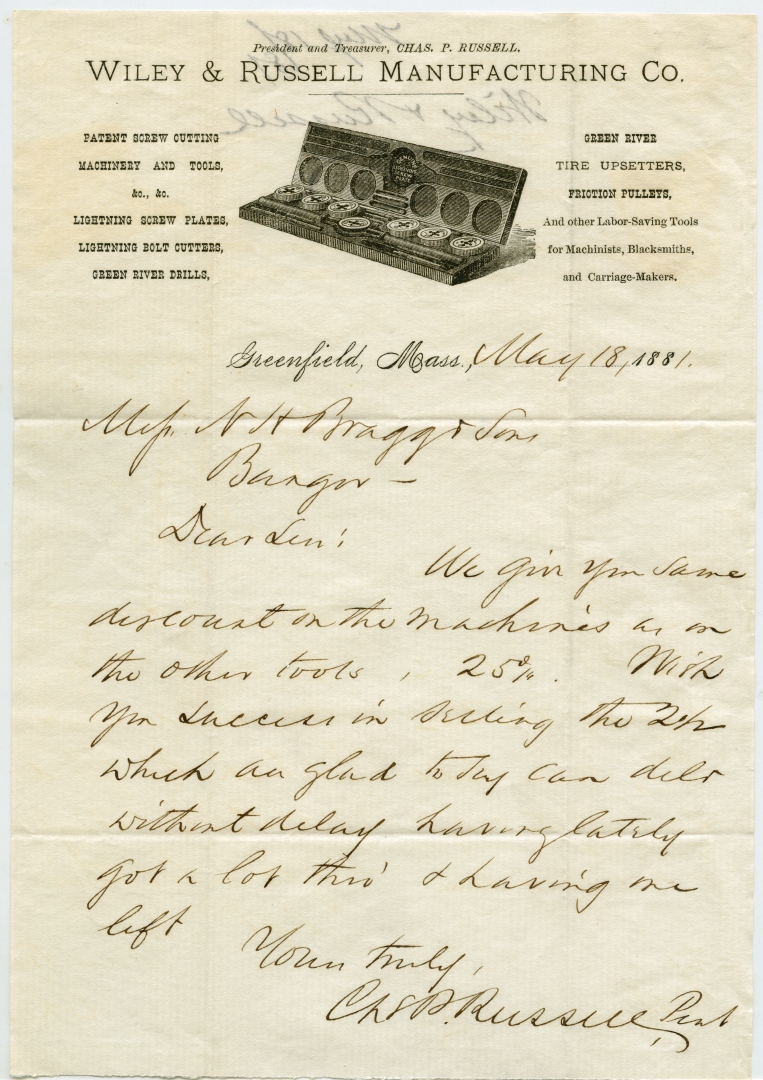 President and Treasurer, CHAS. P. RUSSELL.
WILEY & RUSSELL MANUFACTURING CO.
PATENT SCREW CUTTING
MACHINERY AND TOOLS,
&c., &c.
LIGHTNING SCREW PLATES,
LIGHTNING BOLT CUTTERS,
GREEN RIVER DRILLS,
GREEN RIVER
TIRE UPSETTERS,
FRICTION PULLEYS,
And other Labor-Saving Tools
for Machinists, Blacksmiths,
and Carriage-Makers.
Greenfield, Mass., May 18, 1881.
Mess. N H Bragg & Sons
Bangor —
Dear Sirs:
We give you same
discount on the machines as on
the other tools, 25%. Wish
you success in selling the
which are glad to say can delr
without delay having lately
got a lot thro' & having one
left
Yours truly,
Chs P. Russell, Prest
Wiley & Russell